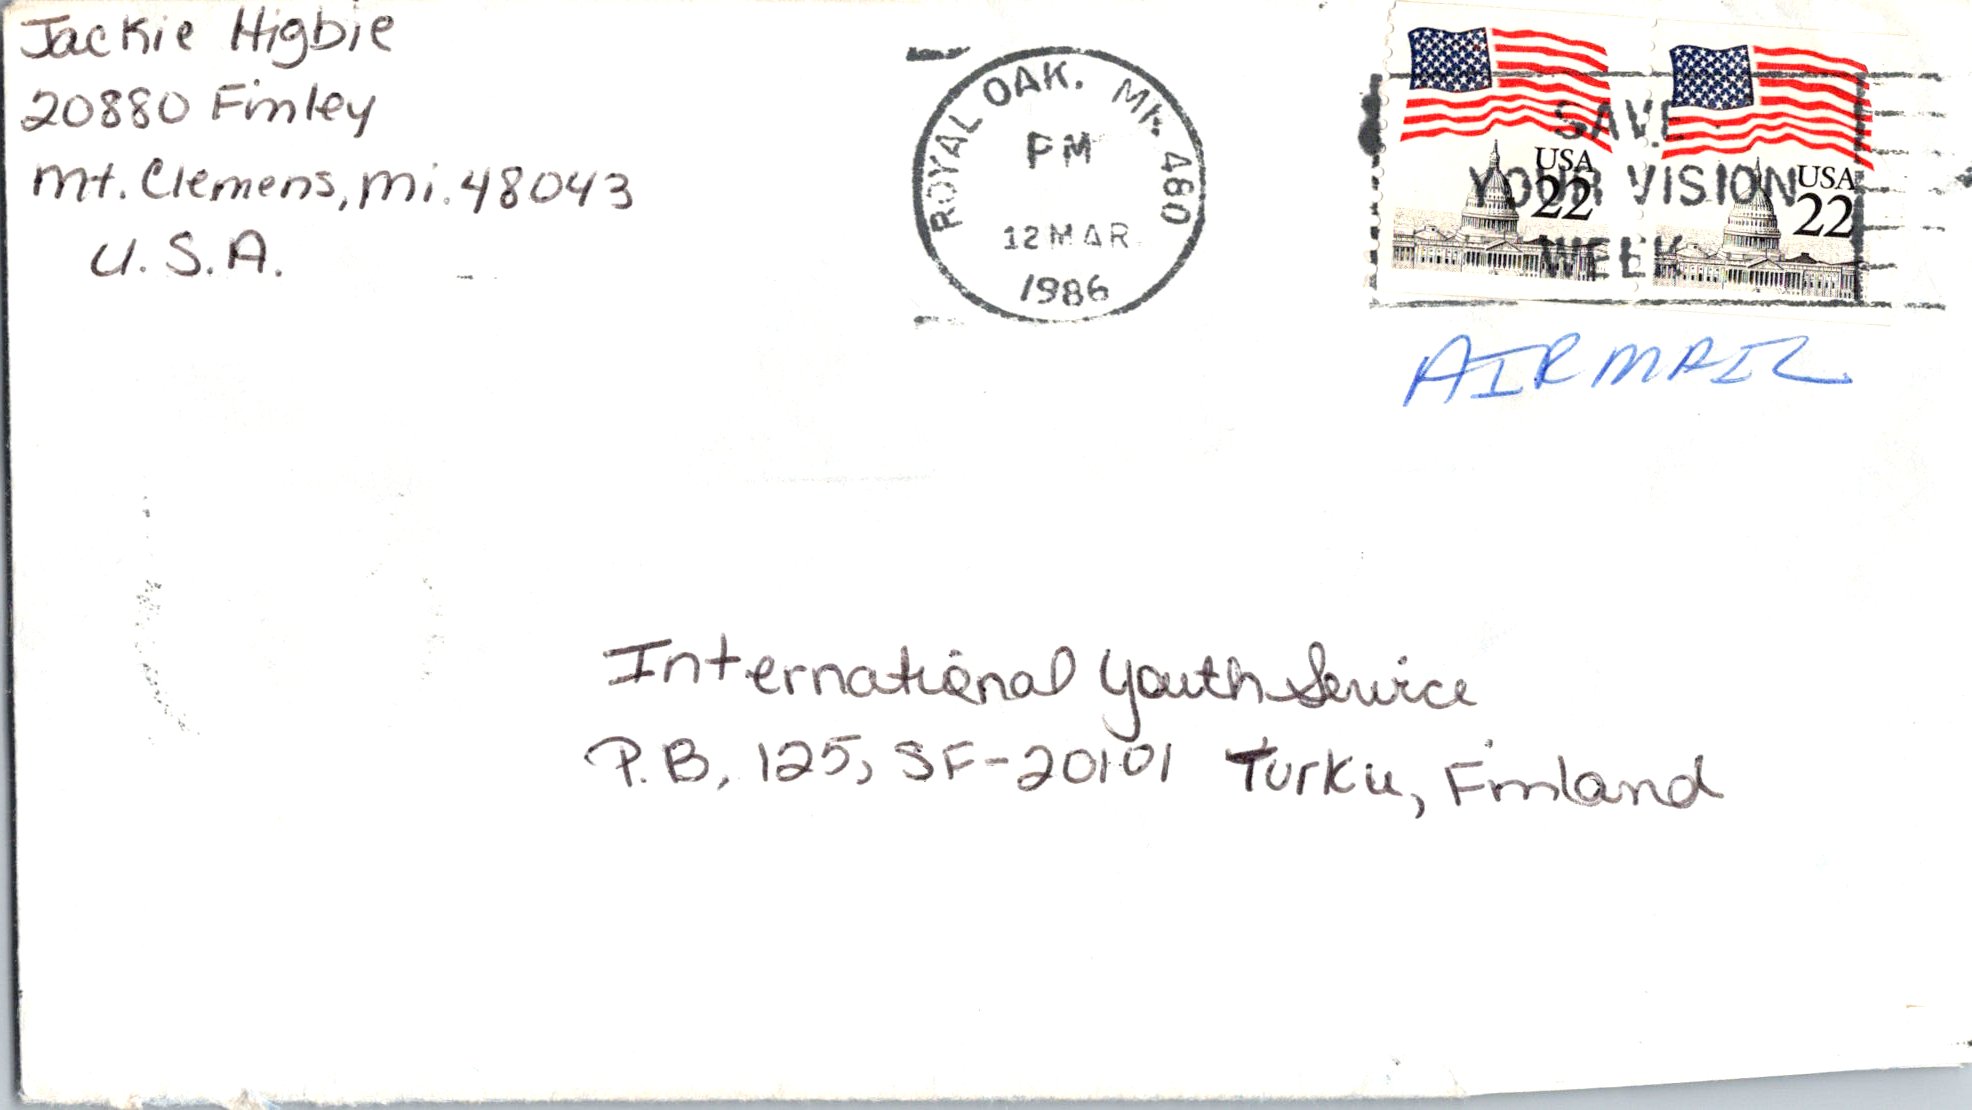 Jackie Higbie
20880 Finley
Mt. Clemens, Mi. 48043
U.S.A.
ROYAL OAK, MI. 480
PM
12 MAR
1986
USA
22
USA
22
SAVE
YOUR VISION
WEEK
AIRMAIL
International Youth Service
P.B, 125, SF-20101 Turku, Finland